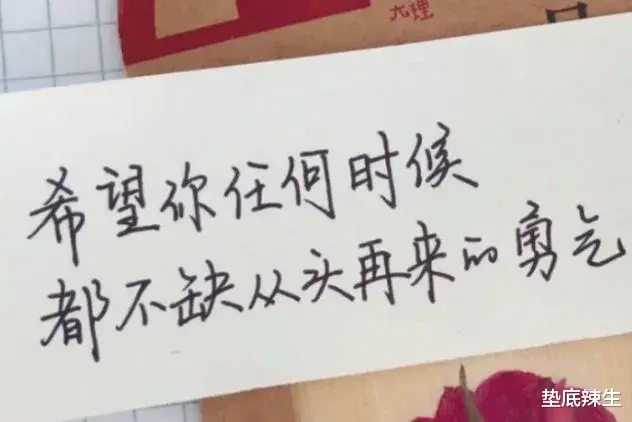 大理
希望你任何时候
都不缺从头再来的勇气
垫底辣生